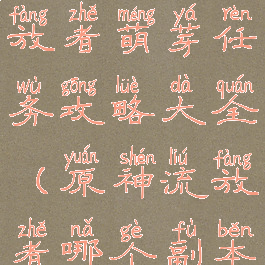 fàng zhě méng yá rèn
放者萌芽任
wù gōng lüè dà quán
务攻略大全
yuán shén liú fàng
（原神流放
zhě nǎ gè fù běn
者哪个副本